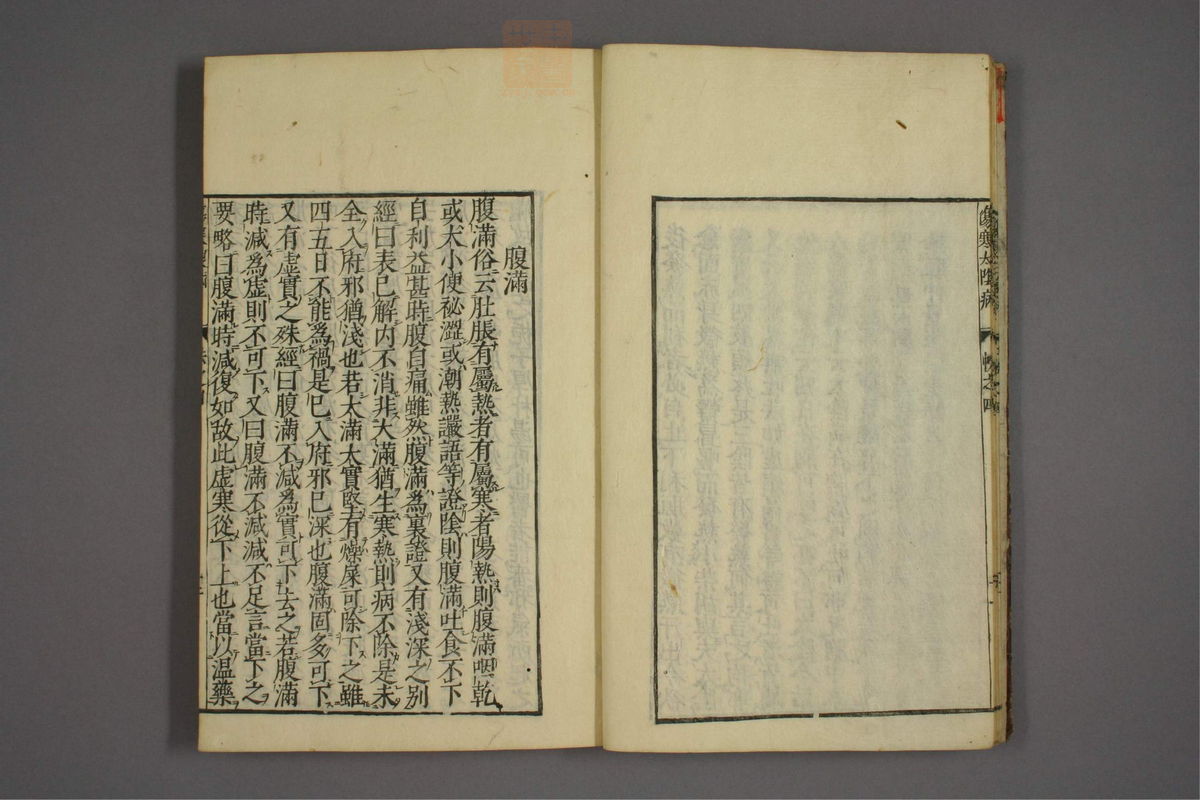 傷寒太陰病
之四
腹滿
腹滿俗云肚脹有屬熱者有屬寒者陽熱則腹滿咽乾
或大小便祕澀或潮熱讝語等證陰則腹滿吐食不下
自利益甚時腹自痛雖然腹滿為裏證又有淺深之別
經曰表已解内不消非大滿猶生寒熱則病不除是未
全入府邪猶淺也若大滿大實堅有燥屎可除下之雖
四五日不能為禍是已入府邪已深也腹滿固多可下
又有虛實之殊經曰腹滿不減為實可下去之若腹滿
時減為虛則不可下又曰腹滿不減減不足言當下之
要略曰腹滿時減復如故此虛寒從下上也當以温藥